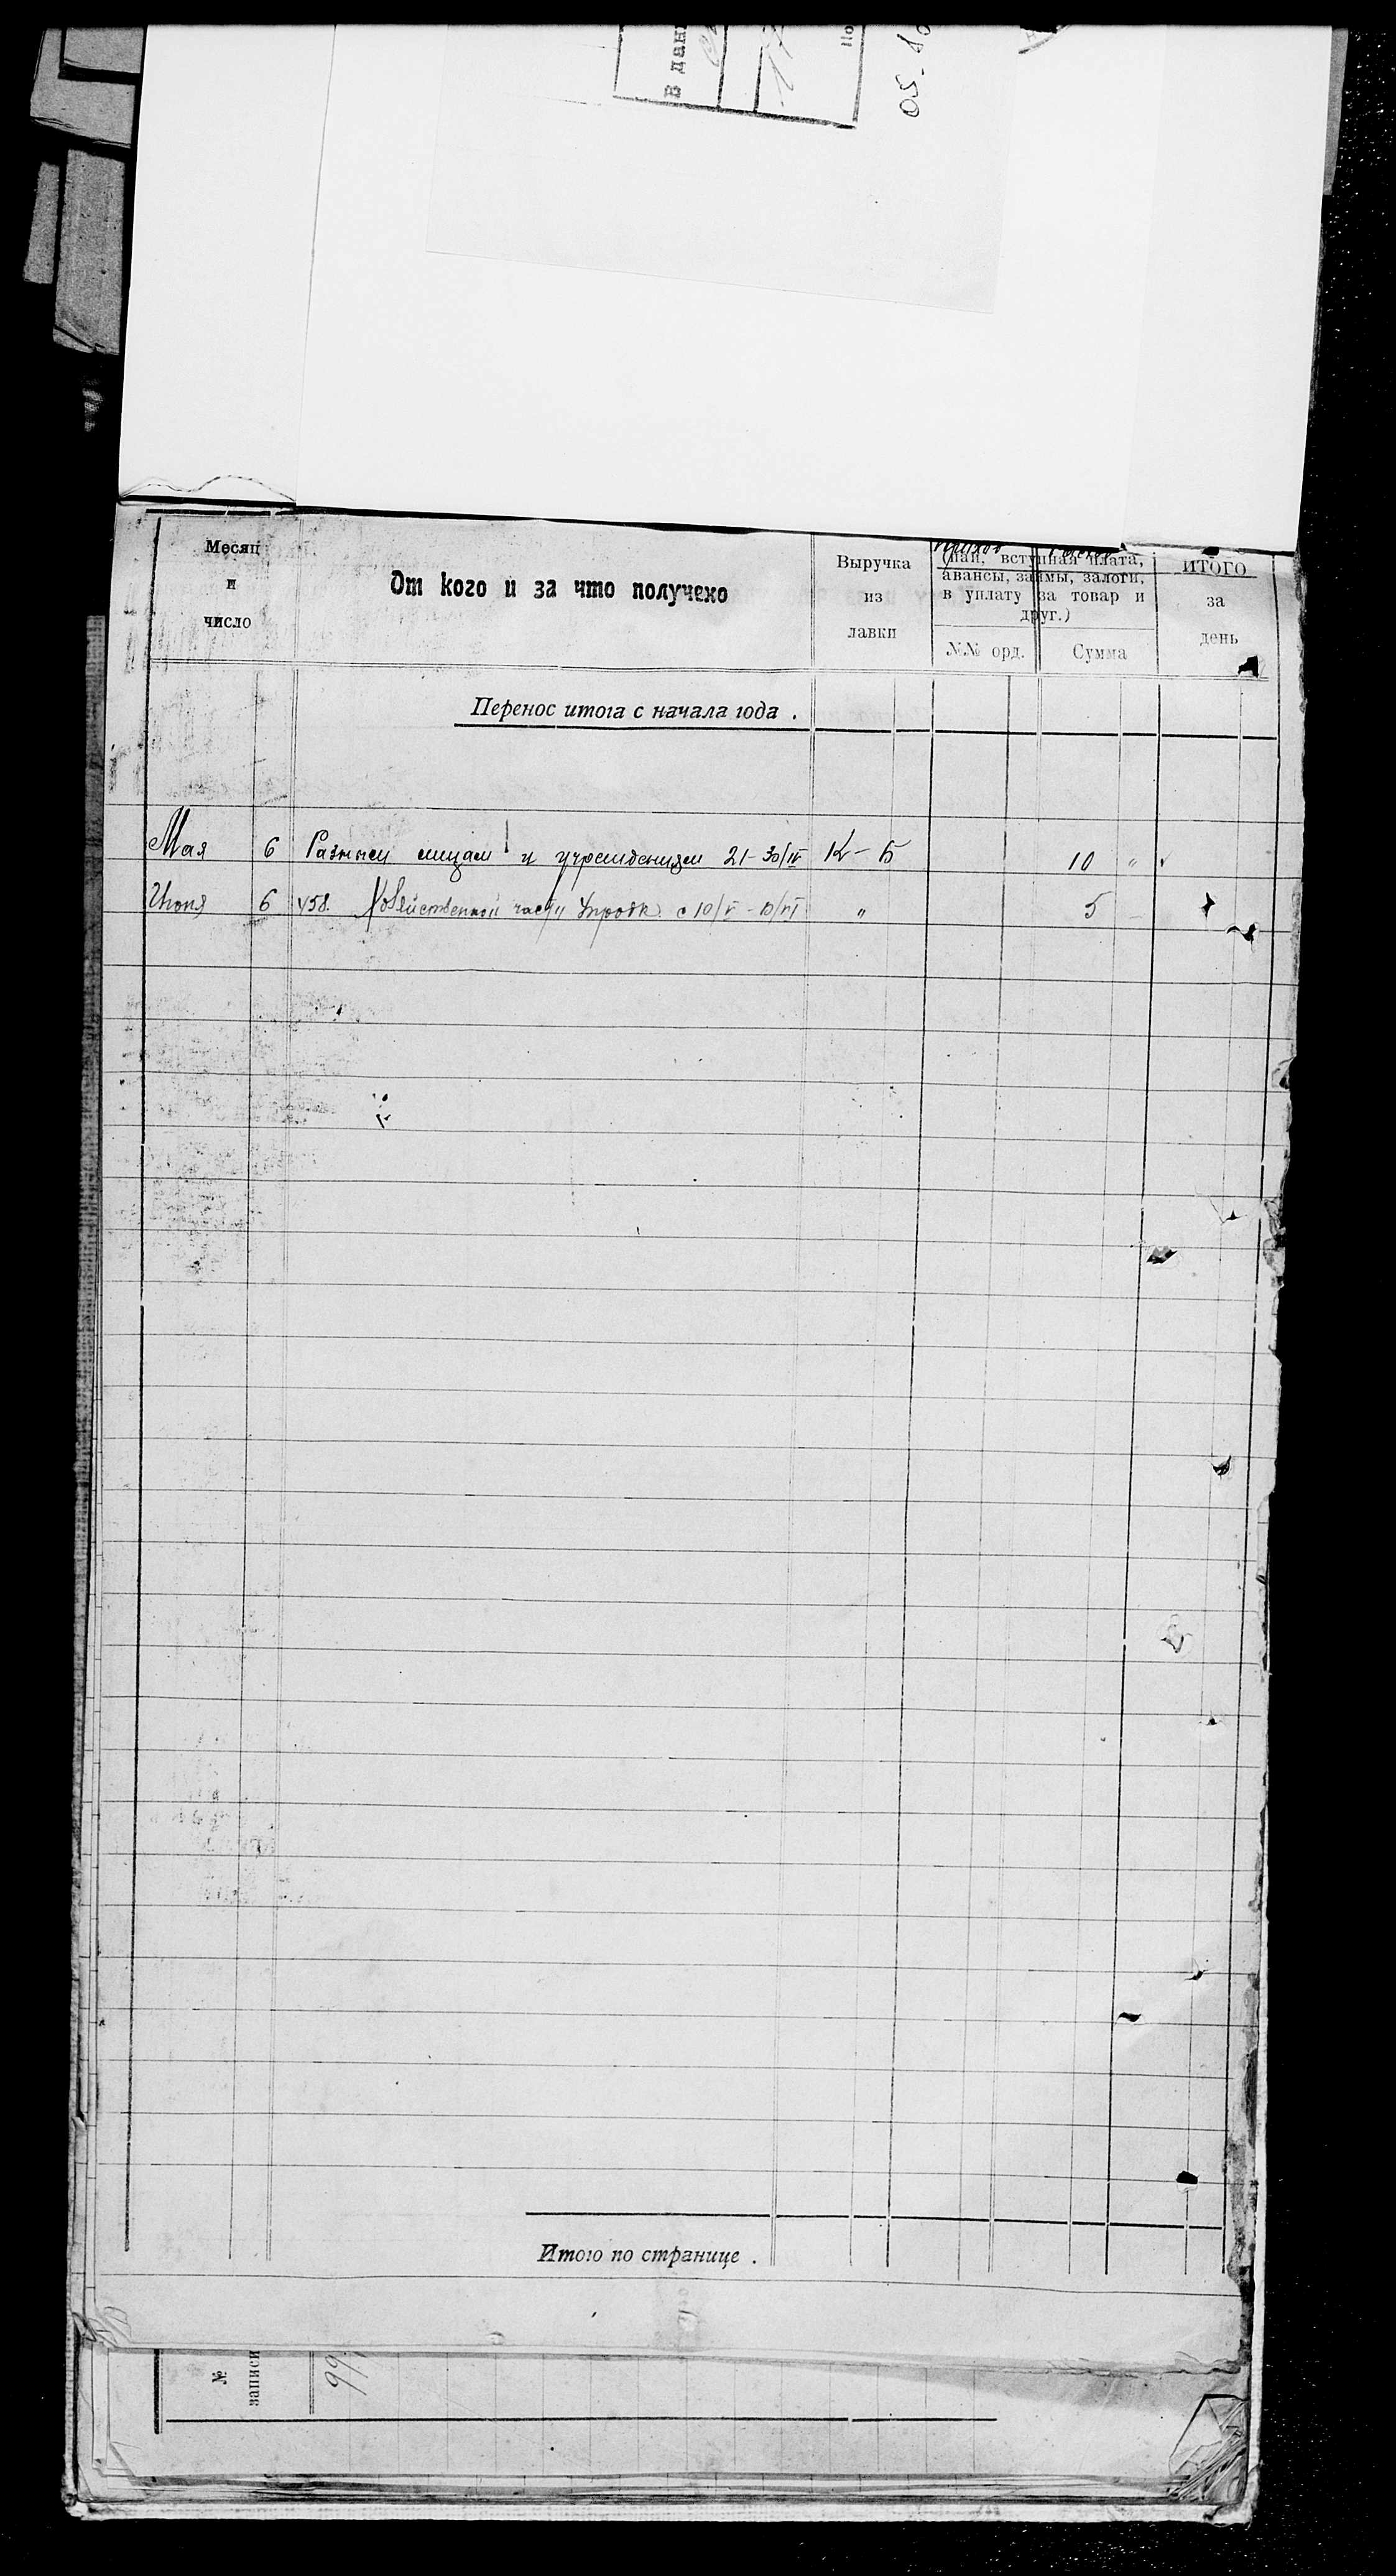 В дан
05.10
Месяц
и
число
От кого и за что получено
Выручка
из
лавки
приход расход
(паи, вступная плата,
авансы, займы, залоги,
в уплату за товар и
друг.)
№№ орд. Сумма
ИТОГО
за
день
Перенос итога с начала года .
Мая 6 Разным лицам и учреждениям 21-30/IV К-Б 10 "
Июня 6 458. Хозяйственной части с 10/V - 10/VI " 5 -
Итого по странице .
№
записи
99/